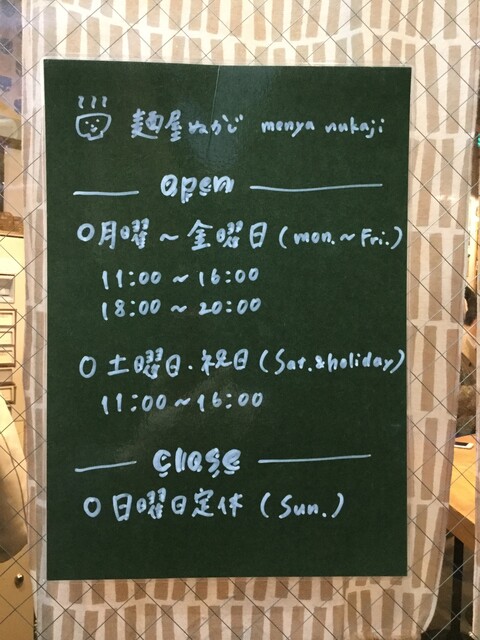 麺屋ぬかじ menya nukaji
open
○月曜～金曜日(mon.～Fri.)
11:00～16:00
18:00～20:00
○土曜日・祝日(Sat.&holiday)
11:00～16:00
close
○日曜日定休(Sun.)